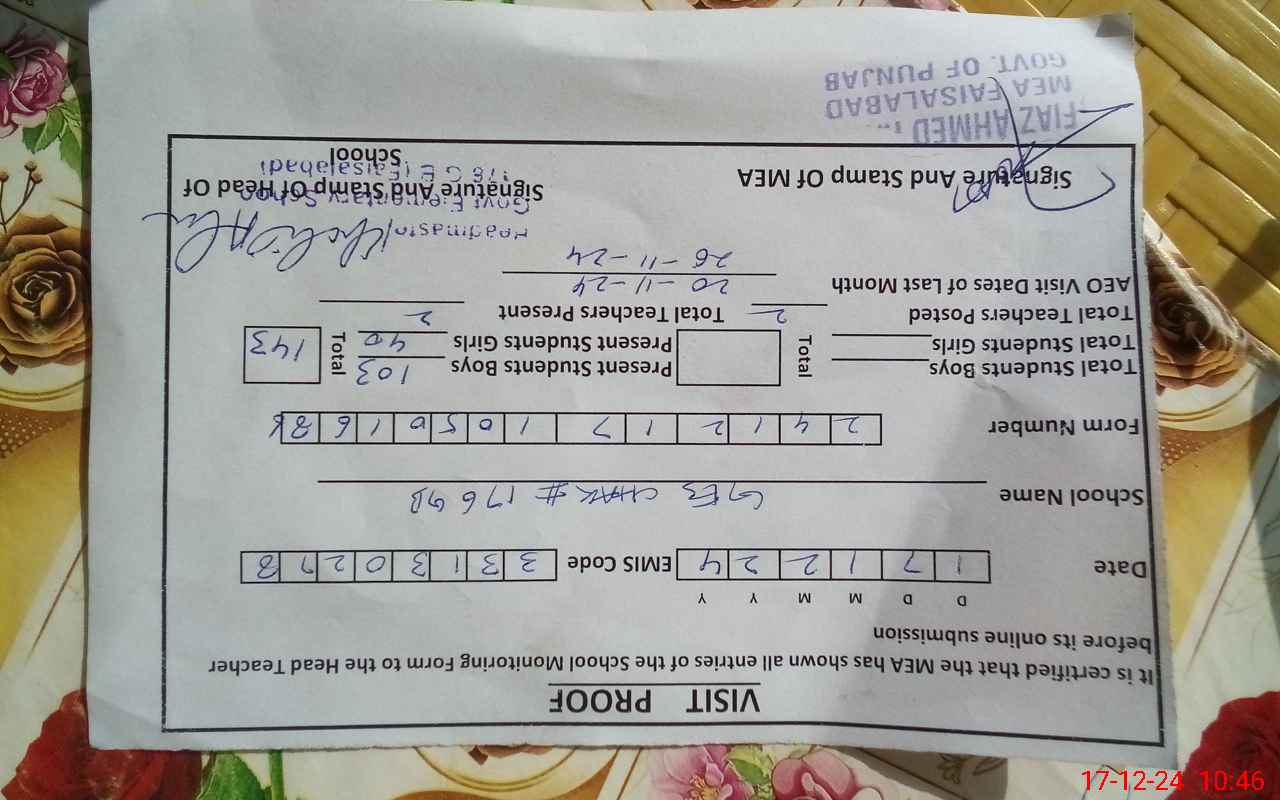 VISIT PROOF
It is certified that the MEA has shown all entries of the School Monitoring Form to the Head Teacher
before its online submission
D D M M Y Y
Date 1 7 1 2 2 4 EMIS Code 3 3 1 3 0 2
School Name GES CHAK # 176 GB
Form Number 2 4 1 2 1 7 1 0 5 0 1 6
Total Students Boys Total Present Students Boys 103 Total 143
Total Students Girls Present Students Girls 40
Total Teachers Posted 2 Total Teachers Present 2
AEO Visit Dates of Last Month 20-11-24
26-11-24
Headmaster
Govt Elementary School
Signature And Stamp Of MEA Signature And Stamp Of Head Of
School
FIAZ AHMED
MEA FAISALABAD
GOVT. OF PUNJAB
17-12-24 10:46